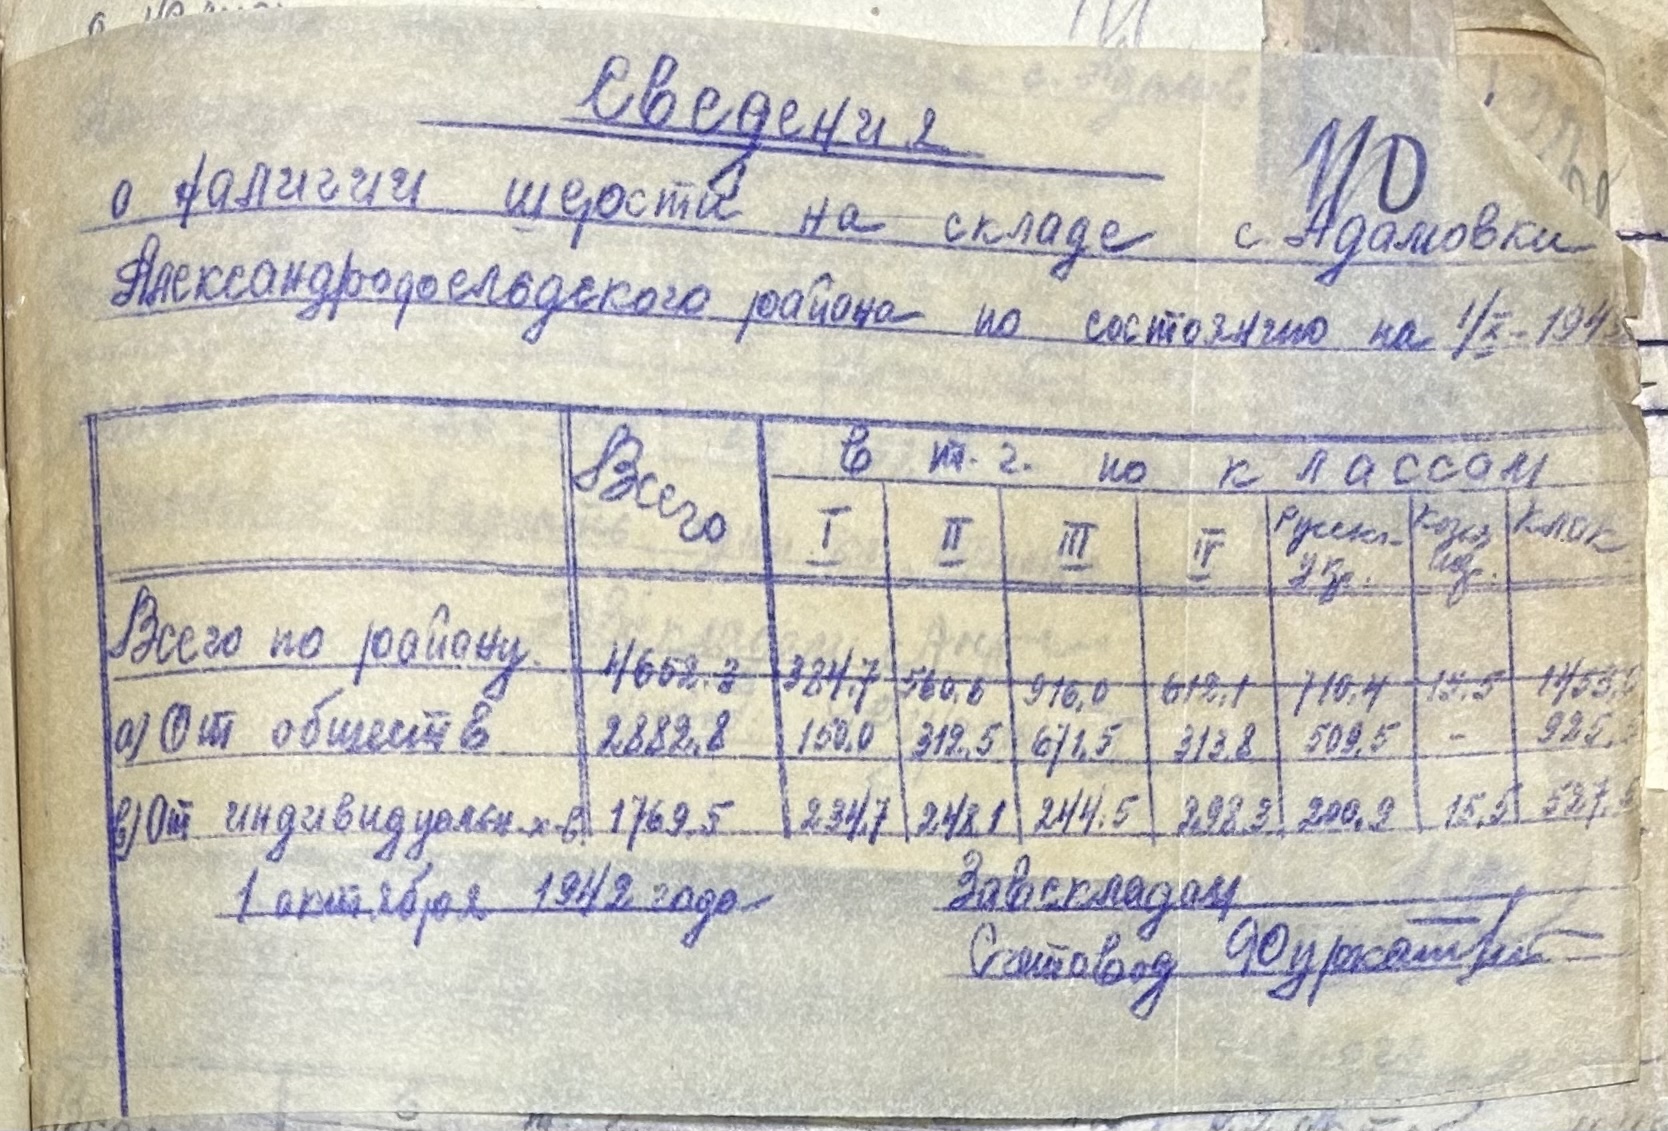 Сведения
110
о наличии шерсти на складе с. Адамовки
Александрфельдского района по состоянию на 1/X-194
Всего в т. г. по классам
I II III IV Русск. Укр. клок
Всего по району 4652.3 384,7 560,6 916,0 612,1 710,4 15,5 1453
а) От обществ 2882,8 150,0 312,5 671,5 313,8 509,5 - 925,
в) От индивидуальн. х-в 1769.5 234,7 248,1 244.5 298,3 200,9 15,5 527,
1 октября 1942 года
Завскладом
Счетовод